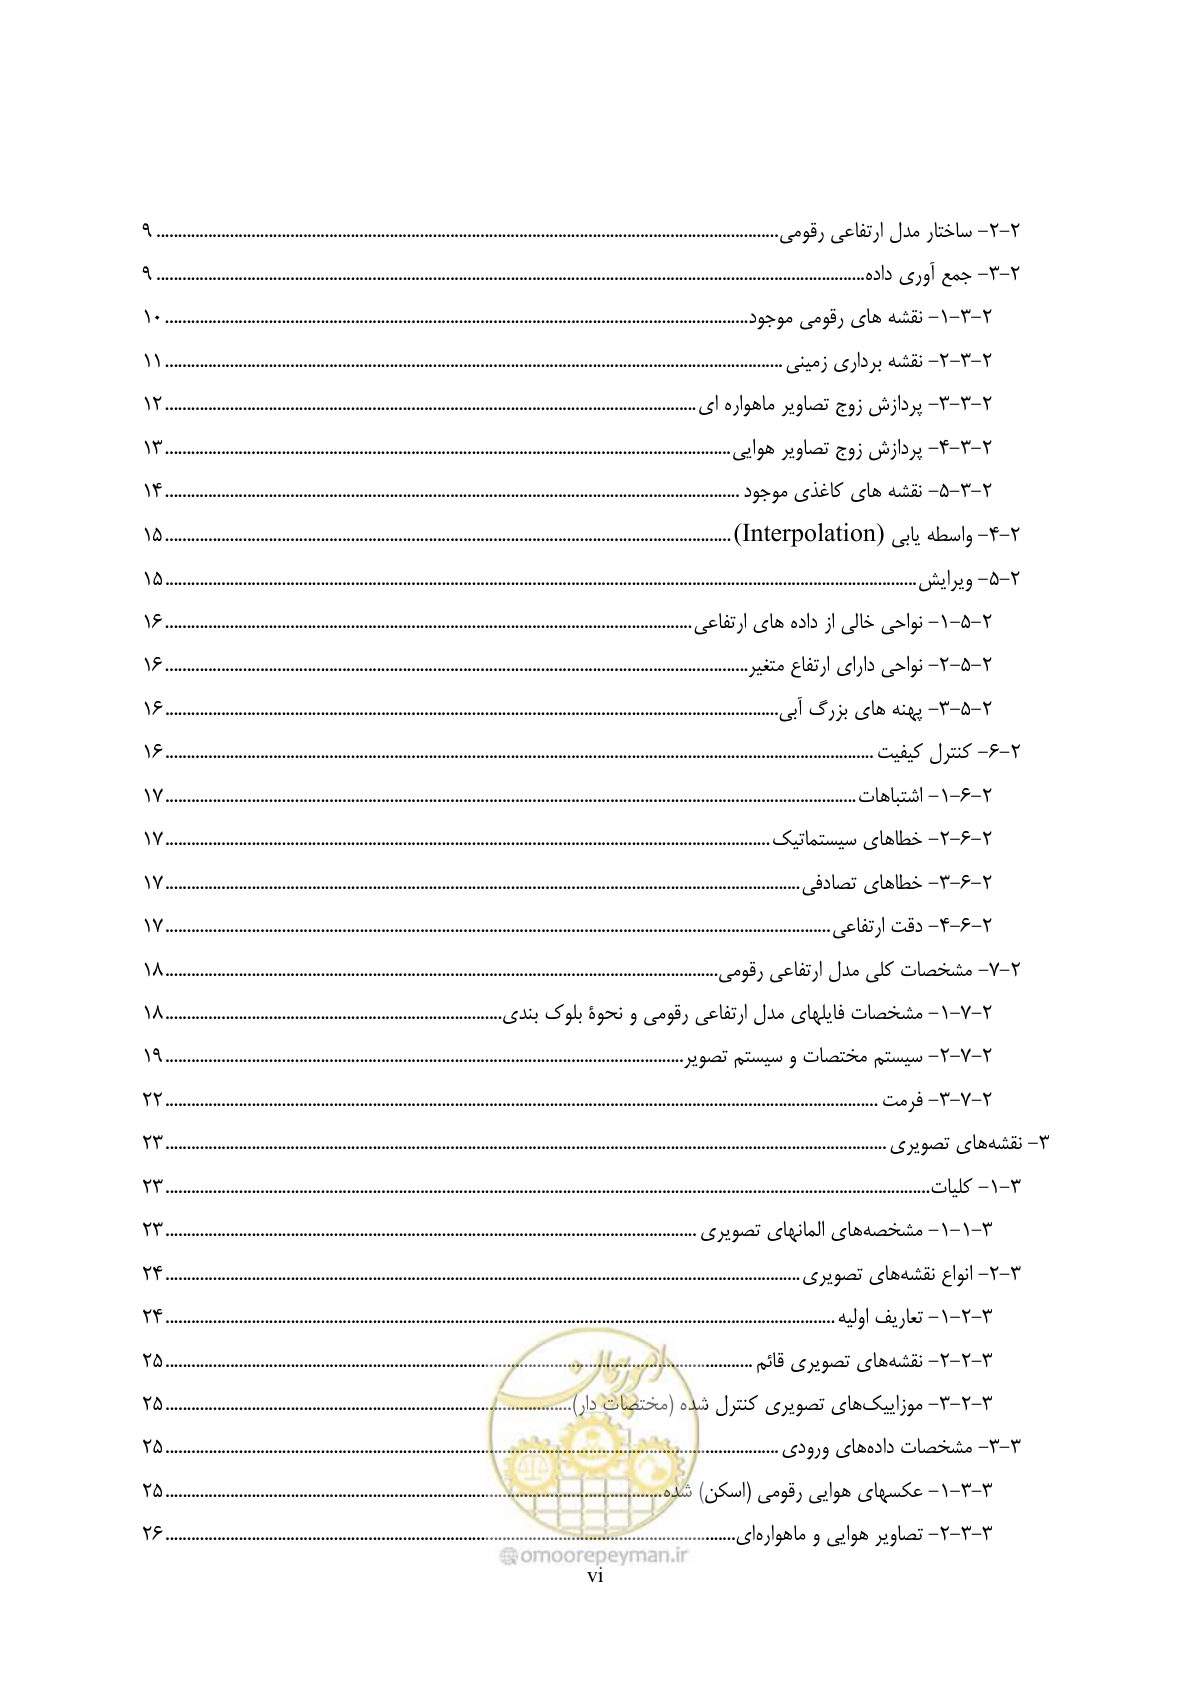 ۲-۲- ساختار مدل ارتفاعی رقومی ۹
۲-۳- جمع آوری داده ۹
۲-۳-۱- نقشه های رقومی موجود ۱۰
۲-۳-۲- نقشه برداری زمینی ۱۱
۲-۳-۳- پردازش زوج تصاویر ماهواره ای ۱۲
۲-۳-۴- پردازش زوج تصاویر هوایی ۱۳
۲-۳-۵- نقشه های کاغذی موجود ۱۴
۲-۴- واسطه یابی (Interpolation) ۱۵
۲-۵- ویرایش ۱۵
۲-۵-۱- نواحی خالی از داده های ارتفاعی ۱۶
۲-۵-۲- نواحی دارای ارتفاع متغیر ۱۶
۲-۵-۳- پهنه های بزرگ آبی ۱۶
۲-۶- کنترل کیفیت ۱۶
۲-۶-۱- اشتباهات ۱۷
۲-۶-۲- خطاهای سیستماتیک ۱۷
۲-۶-۳- خطاهای تصادفی ۱۷
۲-۶-۴- دقت ارتفاعی ۱۷
۲-۷- مشخصات کلی مدل ارتفاعی رقومی ۱۸
۲-۷-۱- مشخصات فایلهای مدل ارتفاعی رقومی و نحوۀ بلوک بندی ۱۸
۲-۷-۲- سیستم مختصات و سیستم تصویر ۱۹
۲-۷-۳- فرمت ۲۲
۳- نقشه‌های تصویری ۲۳
۳-۱- کلیات ۲۳
۳-۱-۱- مشخصه‌های المانهای تصویری ۲۳
۳-۲- انواع نقشه‌های تصویری ۲۴
۳-۲-۱- تعاریف اولیه ۲۴
۳-۲-۲- نقشه‌های تصویری قائم ۲۵
۳-۲-۳- موزاییک‌های تصویری کنترل شده (مختصات دار) ۲۵
۳-۳- مشخصات داده‌های ورودی ۲۵
۳-۳-۱- عکسهای هوایی رقومی (اسکن) شده ۲۵
۳-۳-۲- تصاویر هوایی و ماهواره‌ای ۲۶
امور پیمان
@omoorepeyman.ir
vi